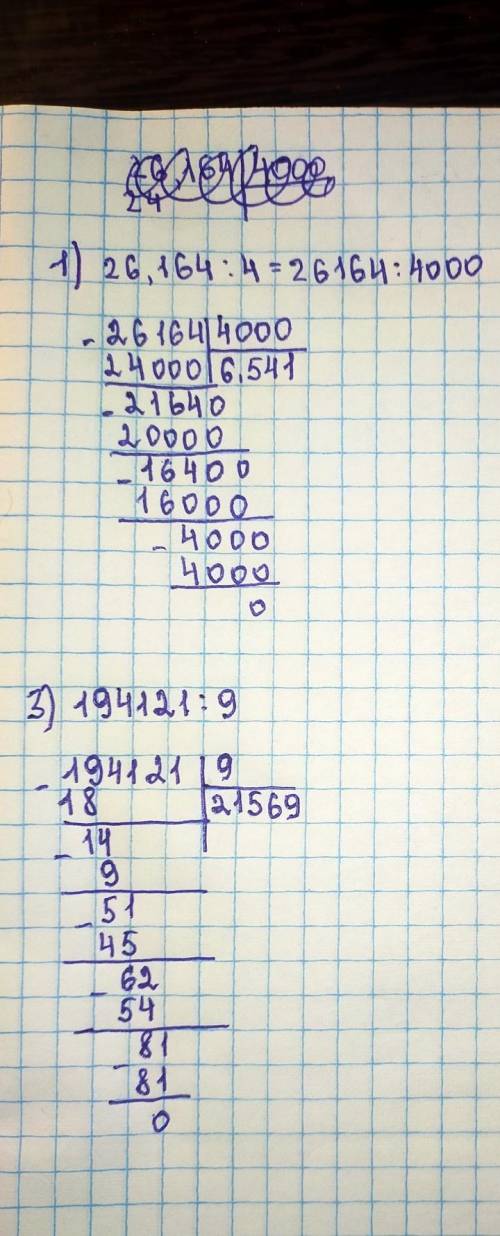 24
1) 26,164 : 4 = 26164 : 4000
- 26164 | 4000
24000 | 6,541
- 21640
20000
- 16400
16000
- 4000
4000
0
3) 194121 : 9
- 194121 | 9
18 | 21569
- 14
9
- 51
45
- 62
54
- 81
81
0